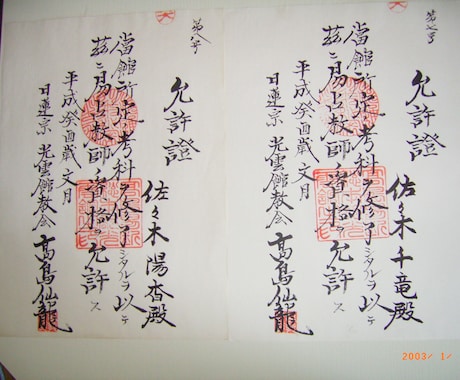 第七号
允許證
佐々木千竜殿
當館所定ノ考科ヲ修了シタルヲ以テ
茲ニ易占教師ノ資格ヲ允許ス
平成癸酉歳文月
日蓮宗 光雲館教会 高島仙龍
第八号
允許證
佐々木陽 殿
當館所定ノ考科ヲ修了シタルヲ以テ
茲ニ易占教師ノ資格ヲ允許ス
平成癸酉歳文月
日蓮宗 光雲館教会 高島仙龍
2003/ 1/